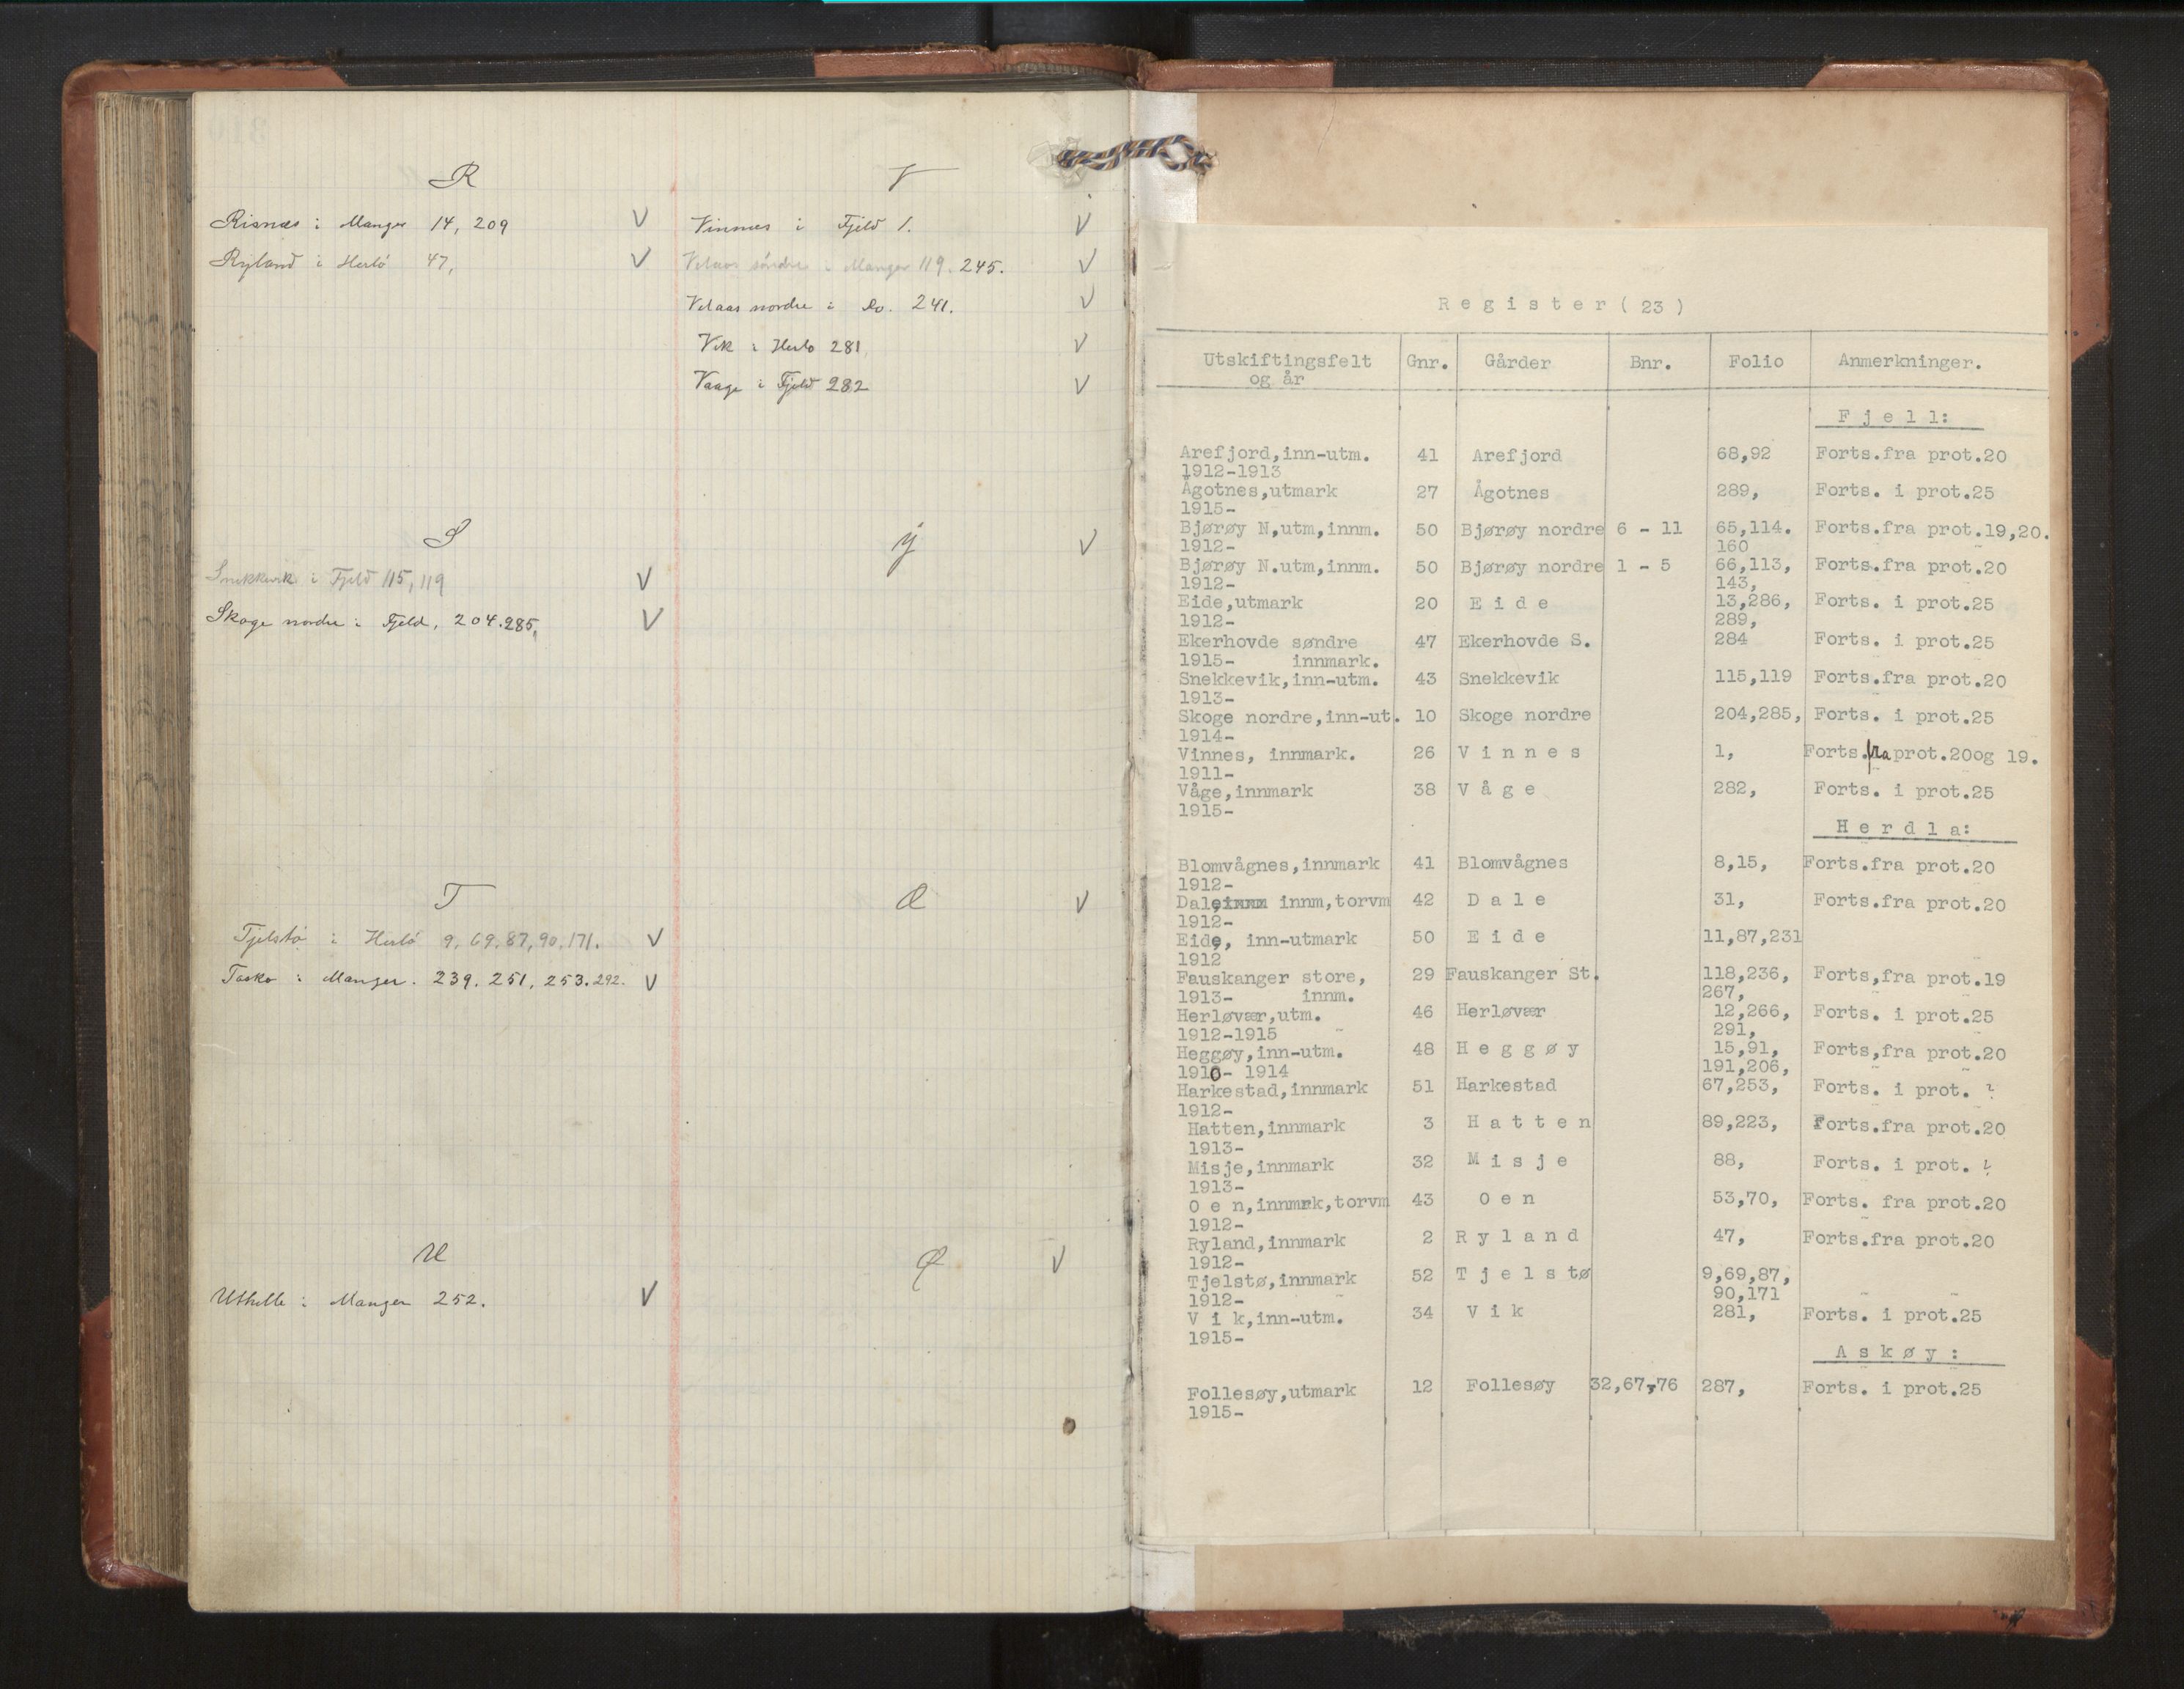 R
Risnæs i Manger 14, 209 V
Ryland i Herlö 47, V
S
Snekkevik i Fjeld 115, 119 V
Skoge nordre i Fjeld, 204. 285, V
T
Tjelstö i Herlö 9, 69, 87, 90, 171. V
Toska i Manger. 239. 251, 253. 292. V
U
Uthelle i Manger 252. V
V
Vinnes i Fjeld 1. V
Velaas söndre i Manger 119. 245. V
Velaas nordre i Do. 241. V
Vik i Herlo 281 V
Vaage i Fjeld 282 V
Y V
Æ V
Ø V
Register ( 23 )
Utskiftingsfelt Gnr. Gårder Bnr. Folio Anmerkninger.
og år
Fjell:
Arefjord,inn-utm. 41 Arefjord 68,92 Forts.fra prot.20
1912-1913
Ågotnes,utmark 27 Ågotnes 289, Forts. i prot.25
1915-
Bjørøy N,utm,innm. 50 Bjørøy nordre 6 - 11 65,114. Forts.fra prot.19,20.
1912- 160
Bjørøy N.utm,innm. 50 Bjørøy nordre 1 - 5 66,113, Forts.fra prot.20
1912- 143,
Eide,utmark 20 E i d e 13,286, Forts. i prot.25
1912- 289,
Ekerhovde søndre 47 Ekerhovde S. 284 Forts. i prot.25
1915- innmark.
Snekkevik,inn-utm. 43 Snekkevik 115,119 Forts.fra prot.20
1913-
Skoge nordre,inn-ut. 10 Skoge nordre 204,285, Forts. i prot.25
1914-
Vinnes, innmark. 26 V i n n e s 1, Forts.fra prot.20og 19.
1911-
Våge,innmark 38 V å g e 282, Forts. i prot.25
1915-
H e r d l a:
Blomvågnes,innmark 41 Blomvågnes 8,15, Forts.fra prot.20
1912-
Dale, innm,torvm 42 D a l e 31, Forts.fra prot.20
1912-
Eide, inn-utmark 50 E i d e 11,87,231
1912
Fauskanger store, 29 Fauskanger St. 118,236, Forts,fra prot.19
1913- innm. 267,
Herløvær,utm. 46 Herløvær 12,266, Forts. i prot.25
1912-1915 291,
Heggøy,inn-utm. 48 H e g g ø y 15,91, Forts,fra prot.20
1910- 1914 191,206,
Harkestad,innmark 51 Harkestad 67,253, Forts. i prot. ?
1912-
Hatten,innmark 3 H a t t e n 89,223, Forts.fra prot.20
1913-
Misje,innmark 32 M i s j e 88, Forts. i prot. ?
1913-
O e n,innmrk,torvm 43 O e n 53,70, Forts. fra prot.20
1912-
Ryland,innmark 2 R y l a n d 47, Forts.fra prot.20
1912-
Tjelstø,innmark 52 T j e l s tø 9,69,87,
1912- 90,171
V i k,inn-utm. 34 V i k 281, Forts. i prot.25
1915-
A s k ø y :
Follesøy,utmark 12 Follesøy 32,67,76 287, Forts. i prot.25
1915-